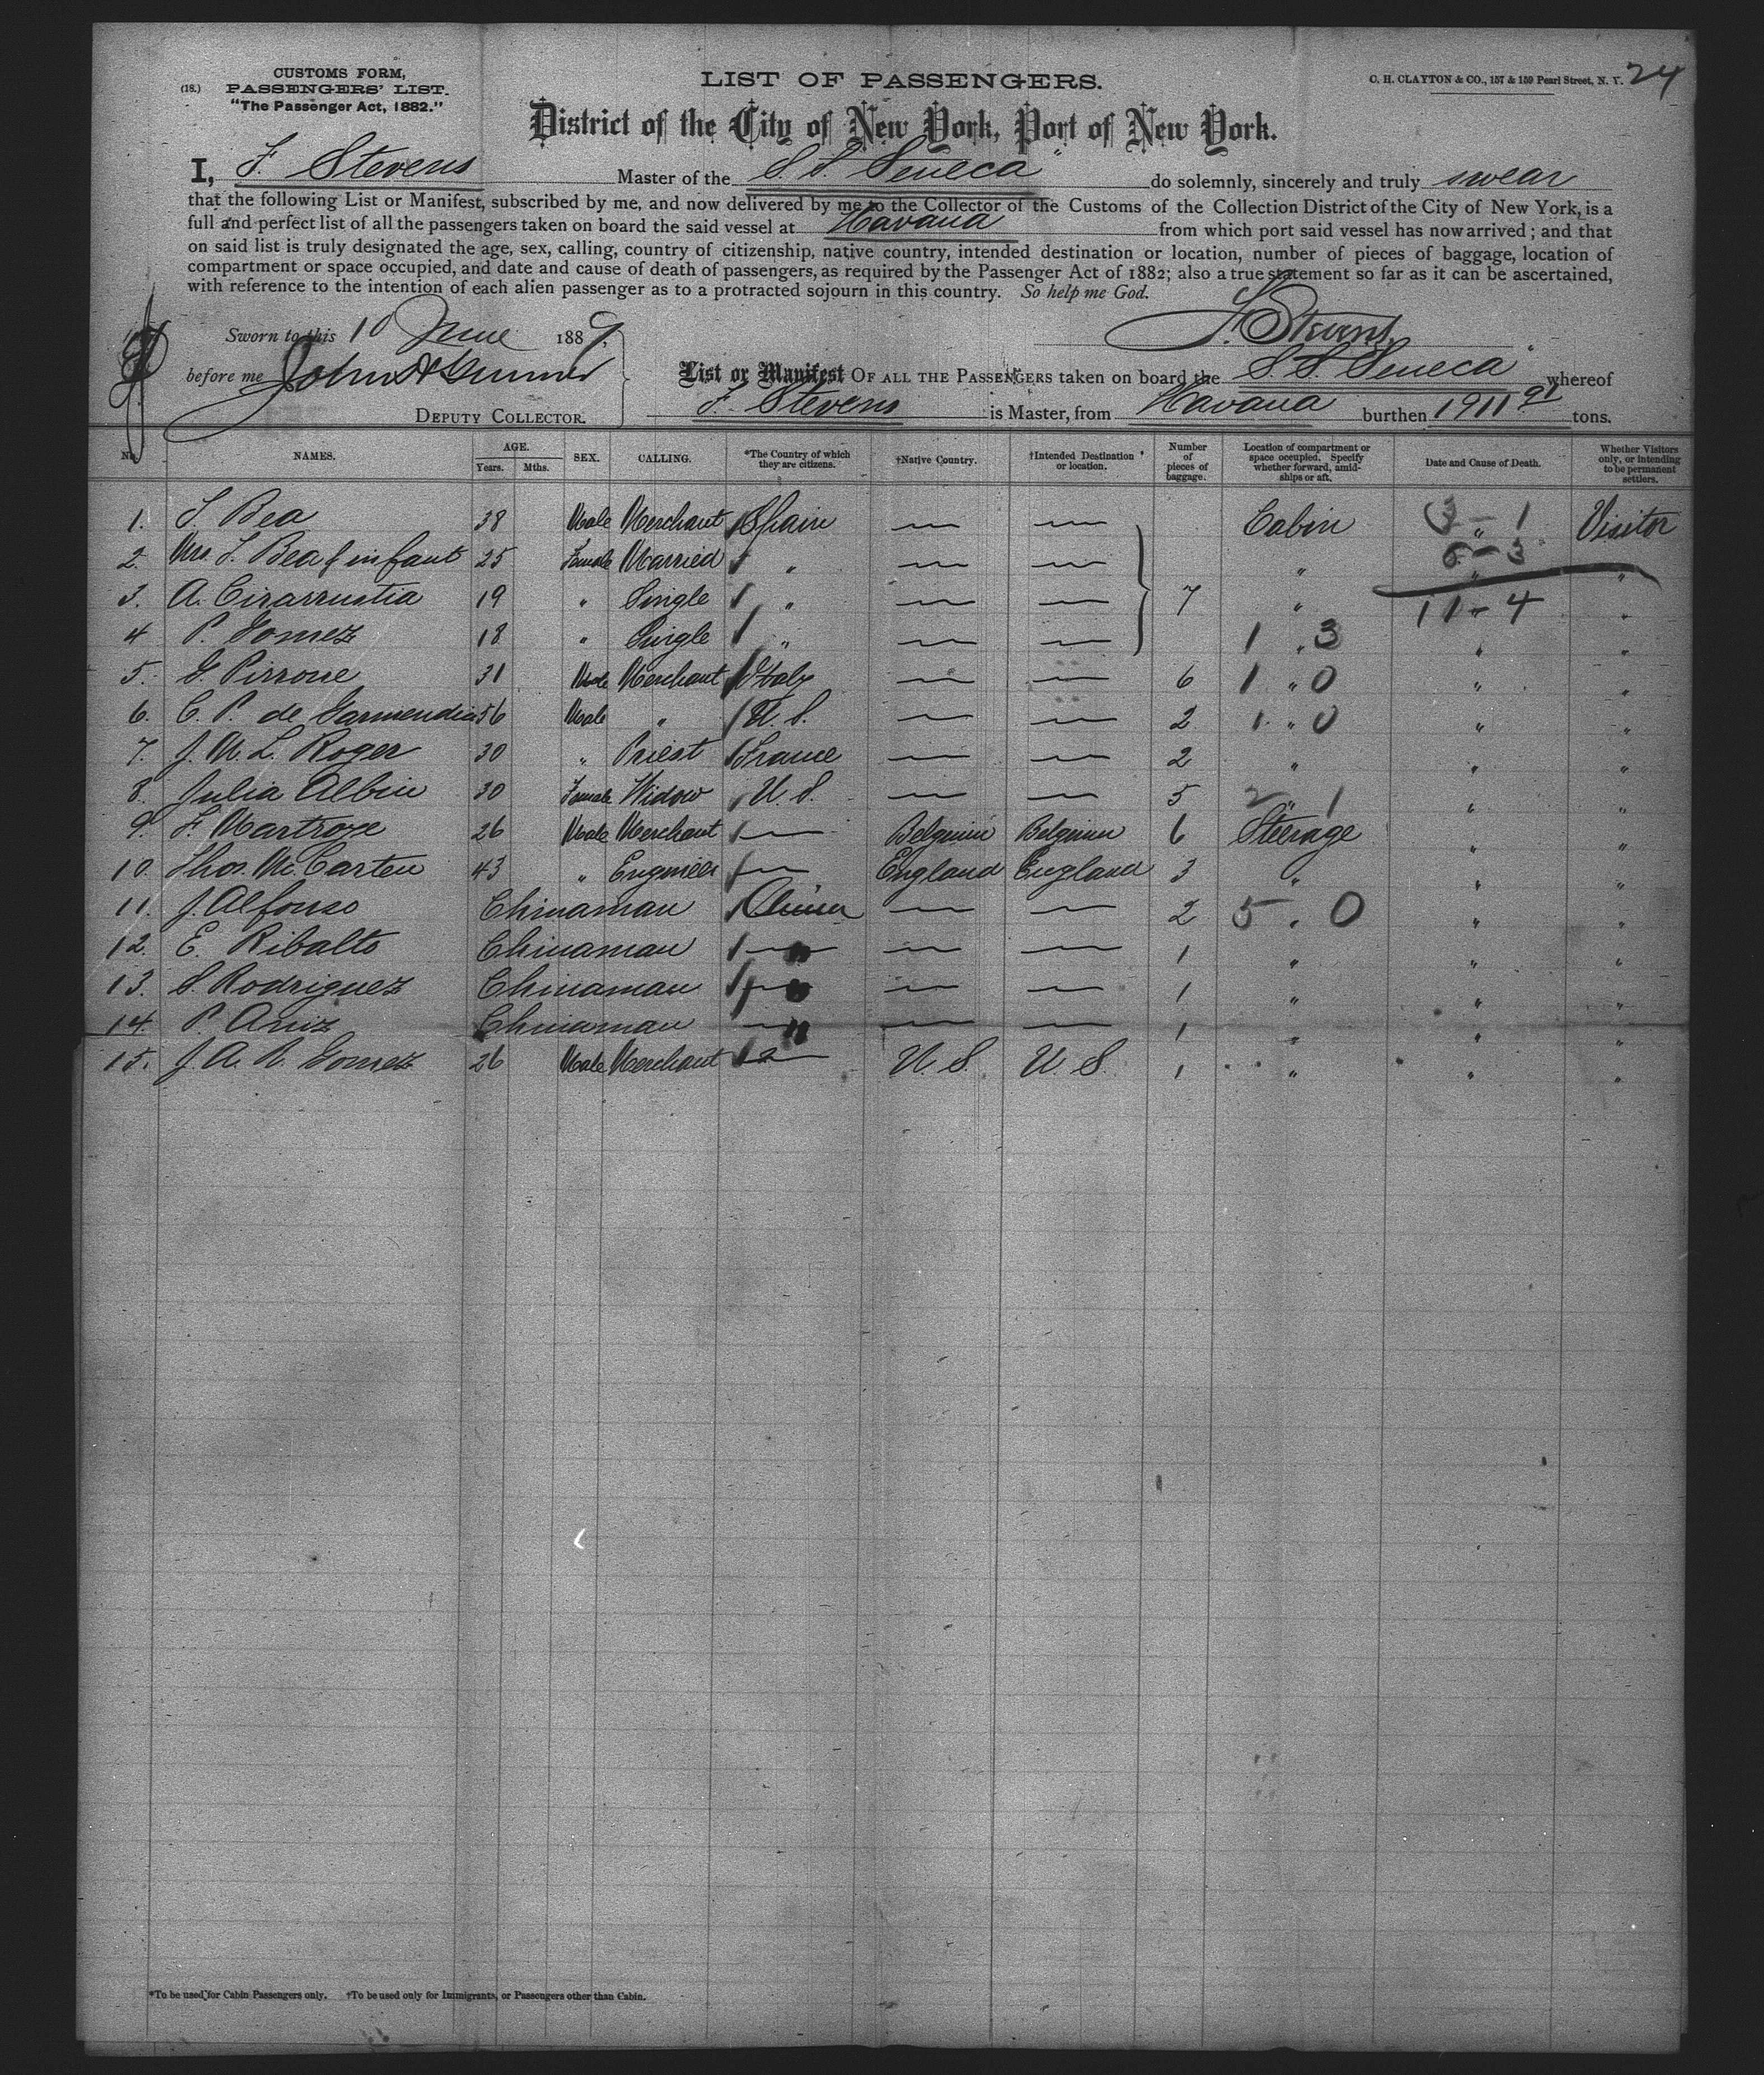 CUSTOMS FORM,
(18.) PASSENGERS' LIST.
"The Passenger Act, 1882."
LIST OF PASSENGERS.
C. H. CLAYTON & CO., 157 & 159 Pearl Street, N. Y. 24
District of the City of New York, Port of New York.
I, F. Stevens Master of the S.S. Seneca" do solemnly, sincerely and truly swear
that the following List or Manifest, subscribed by me, and now delivered by me to the Collector of the Customs of the Collection District of the City of New York, is a
full and perfect list of all the passengers taken on board the said vessel at Havana from which port said vessel has now arrived; and that
on said list is truly designated the age, sex, calling, country of citizenship, native country, intended destination or location, number of pieces of baggage, location of
compartment or space occupied, and date and cause of death of passengers, as required by the Passenger Act of 1882; also a true statement so far as it can be ascertained,
with reference to the intention of each alien passenger as to a protracted sojourn in this country. So help me God.
Sworn to this 10 June 1889, F. Stevens
before me John
DEPUTY COLLECTOR.
List or Manifest OF ALL THE PASSENGERS taken on board the S.S. Seneca" whereof
F. Stevens is Master, from Havana burthen 1911 91 tons.
No. NAMES. AGE. Years. Mths. SEX. CALLING. *The Country of which they are citizens. †Native Country. †Intended Destination or location. Number of pieces of baggage. Location of compartment or space occupied. Specify whether forward, amidships or aft. Date and Cause of Death. Whether Visitors only, or intending to be permanent settlers.
1. S. Bea 38 Male Merchant Spain — — Cabin 3 - 1 Visitor
2. Mrs. S. Bea & infant 25 Female Married " — — " 8 - 3 "
3. A. Cirarrustia 19 " Single " — — 7 " 11 - 4 "
4 P. Gomez 18 " Single " — — 1 " 3 " "
5. G. Pirrone 31 Male Merchant Italy — — 6 1 " 0 " "
6. C. P. de Garmendia 56 Male " U. S. — — 2 1 " 0 " "
7. J. M. L. Roger 30 " Priest France — — 2 " " "
8. Julia Albin 30 Female Widow U. S. — — 5 2 " 1 " "
9. F. Martrose 26 Male Merchant — Belgium Belgium 6 Steerage " "
10. Thos. McCarten 43 " Engineer — England England 3 " " "
11. J. Alfonso Chinaman China — — 2 5 " 0 " "
12. E. Ribalto Chinaman — — — 1 " " "
13. S. Rodriguez Chinaman — — — 1 " " "
14. P. Ariz Chinaman — — — 1 " " "
15. J. A. R. Gomez 26 Male Merchant — U. S. U. S. 1 " " "
*To be used for Cabin Passengers only. †To be used only for Immigrants, or Passengers other than Cabin.